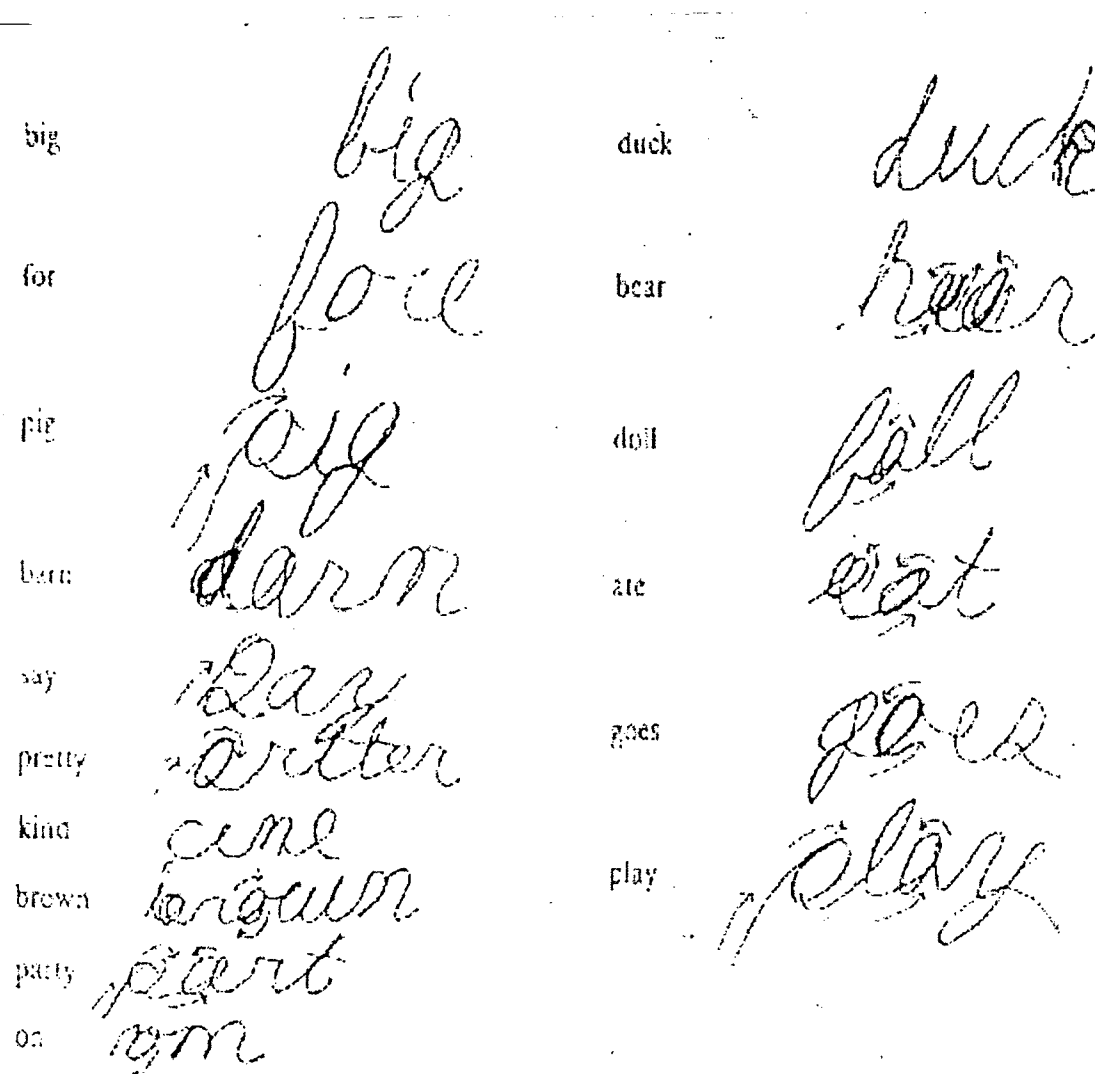 big big
for fore
pig pig
barn darn
say say
pretty pritter
kind cine
brown
party part
on om
duck duck
bear
doll fall
ate eat
goes goes
play play